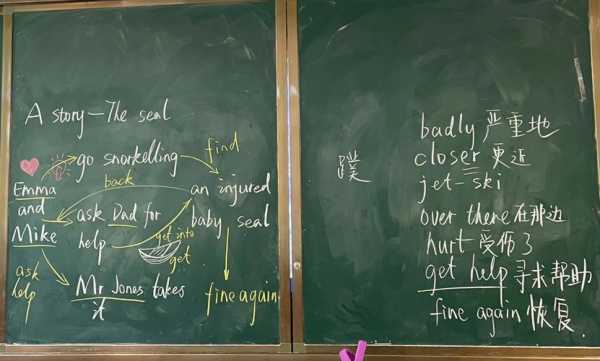 A story-The seal
find
go snorkelling
back
Emma
and
Mike
an injured
baby seal
ask Dad for
help
get into
get
ask
help
Mr Jones takes
it
fine again
蹼
badly 严重地
closer 更近
jet-ski
over there 在那边
hurt-受伤了
get help 寻求帮助
fine again 恢复